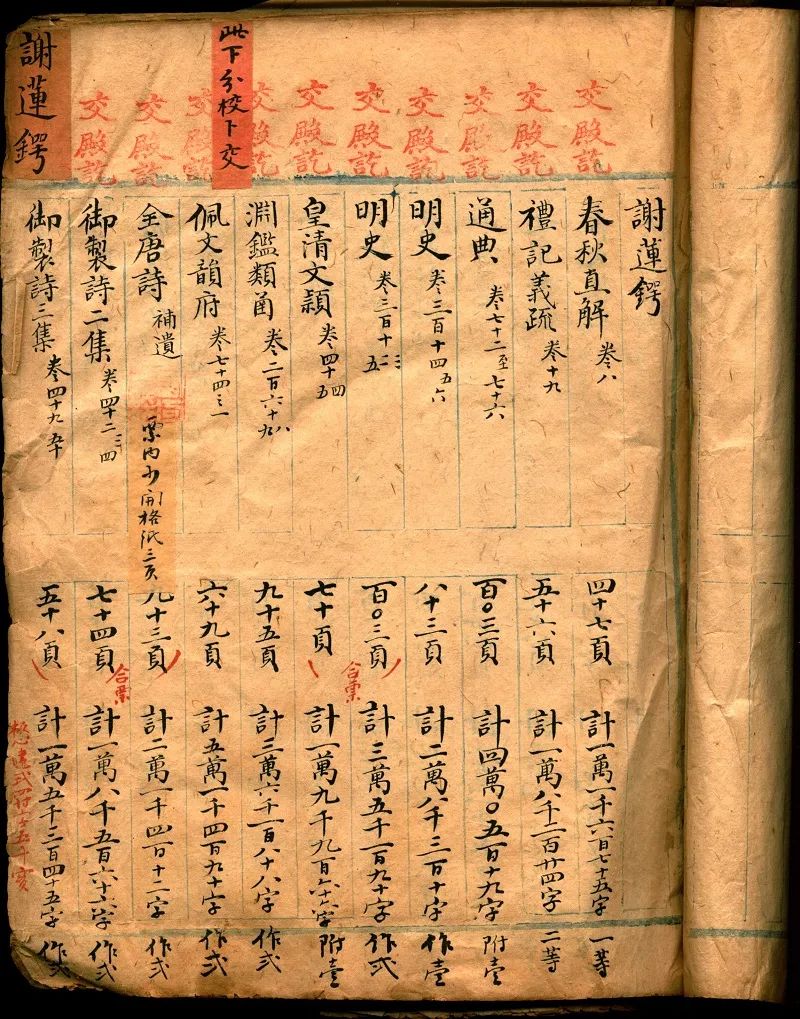 謝蓮鍔
交殿訖 春秋直解 卷八 四十七頁 計一萬一千六百七十五字 一等
交殿訖 禮記義疏 卷十九 五十六頁 計一萬八千二百廿四字 二等
交殿訖 通典 卷七十二至七十六 百〇三頁 計四萬〇五百十九字 附壹
交殿訖 明史 卷三百十四 五 六 八十三頁 計二萬八千三百十字 作壹
交殿訖 明史 卷三百十 五 百〇三頁 計三萬五千一百九十字 作弍
合票
交殿訖 皇清文穎 卷四十四 五 七十頁 計一萬九千九百六十六字 附壹
交殿訖 淵鑑類函 卷二百六十八 九 九十五頁 計三萬六千一百八十八字 作弍
此下分校下交
交殿訖 佩文韻府 卷七十四之一 六十九頁 計五萬一千四百九十字 作弍
交殿訖 全唐詩 補遺 九十三頁 計二萬一千四百十二字 作弍
票內少開格紙三頁
交殿訖 御製詩二集 卷四十二 三 四 七十四頁 計一萬八千五百六十六字 作弍
合票
御製詩三集 卷四十九 五十 五十八頁 計一萬五千三百四十五字 作弍
謝蓮鍔